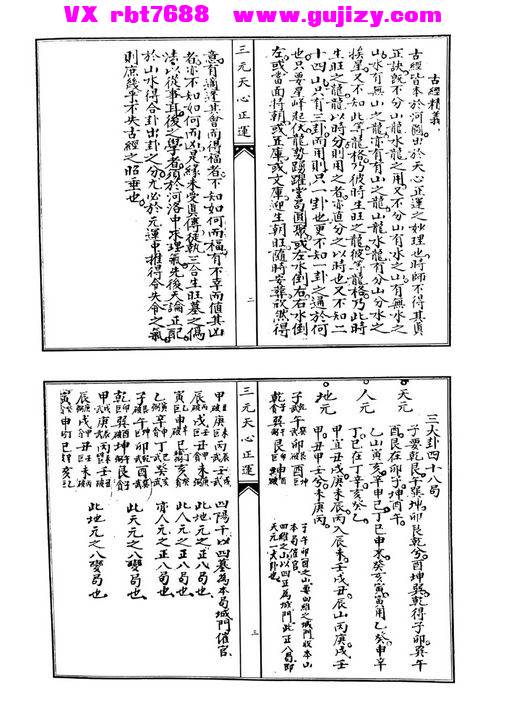 VX rbt7688 www.gujizy.com
古經精義
古經皆本於河圖出於天心正運之妙理也時師不得其真
正訣既不分山龍水龍之用又不分山有水之山有無水之
山水有無山之龍亦有有山之龍山龍水龍有分山分水之
挨星又不知此等龍格乃彼時生旺之龍彼等龍格乃此時
生旺之龍龍以時分則用之者亦直分之以時也又不知二
十四山只有三卦而用則只一卦也更不知一卦之通於何
也只要星峰起伏龍勢踴躍堂局團聚或左水倒右右水倒
左或當面特朝或五庫或文庫迎生朝旺隨時安葬欣然得
意有適逢其會而得福者不知如何而福有不幸而值其凶
者亦不知如何而凶是緣未受真傳徒執三合生旺墓之偽
法以從事耳後之學者須於河洛中求理氣先後天論正配
於山水得合卦出卦之分尤必於元運中推得令失令之氣
則庶幾乎不失古經之昭垂也
三元天心正運
二
三大卦四十八局
天元
子要乾艮子巽坤卯艮乾兮酉坤巽乾得子卯巽午
酉艮在卯子坤酉午
人元
乙山寅亥辛申己丁巳申水癸亥寅寅用乙癸申辛
丁巳在丁辛亥癸乙
地元
甲宜丑戌庚未辰丙入辰未壬戌丑辰山丙庚戌壬
甲丑甲壬兮未庚丙
子午卯酉
乾巽艮坤
子午卯酉之山要四維之城門收本山
本局催官
四維之山以四正為城門此正八局即
天元一大卦也
三元天心正運
三
四陽干以四墓為本局城門催官
此地元之正八局也
此人元之正八局也
亦人元之正八局也
此天元之八變局也
此地元之八變局也